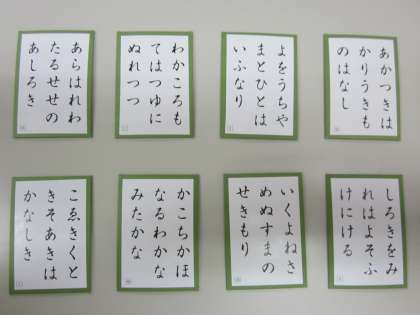 あらはれわ
たるせせの
あしろき
わかころも
てはつゆに
ぬれつつ
よをうちや
まとひとは
いふなり
あかつきは
かりうきも
のはなし
こゑきくと
きそあきは
かなしき
かこちかほ
なるわかな
みたかな
いくよねさ
めぬすまの
せきもり
しろきをみ
れはよそふ
けにける